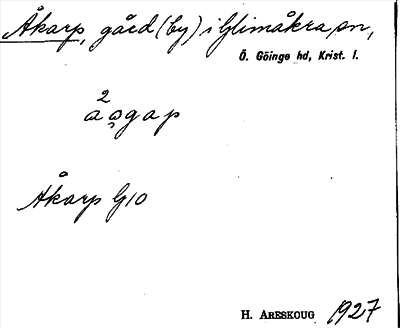 Åkarp, gård (by) i Glimåkra sn,
Ö. Göinge hd, Krist. l.
Åkarp G10
H. ARESKOUG 1927